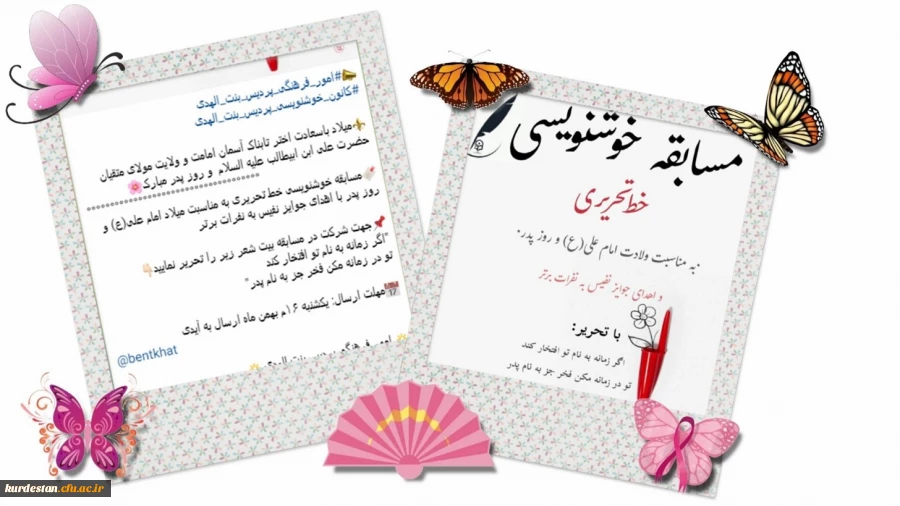 #امور_فرهنگی_پردیس_بنت_الهدی
#کانون_خوشنویسی_پردیس_بنت_الهدی
میلاد باسعادت اختر تابناک آسمان امامت و ولایت مولای متقیان
حضرت علی ابن ابیطالب علیه السلام و روز پدر مبارک
مسابقه خوشنویسی خط تحریری به مناسبت میلاد امام علی(ع) و
روز پدر با اهدای جوایز نفیس به نفرات برتر
جهت شرکت در مسابقه بیت شعر زیر را تحریر نمایید
"اگر زمانه به نام تو افتخار کند
تو در زمانه مکن فخر جز به نام پدر"
مهلت ارسال: یکشنبه ۱۶م بهمن ماه ارسال به آیدی
@bentkhat
امور فرهنگی پردیس بنت الهدی
مسابقه خوشنویسی
خط تحریری
به مناسبت ولادت امام علی(ع) و روز پدر
و اهدای جوایز نفیس به نفرات برتر
با تحریر:
اگر زمانه به نام تو افتخار کند
تو در زمانه مکن فخر جز به نام پدر
kurdestan.cfu.ac.ir